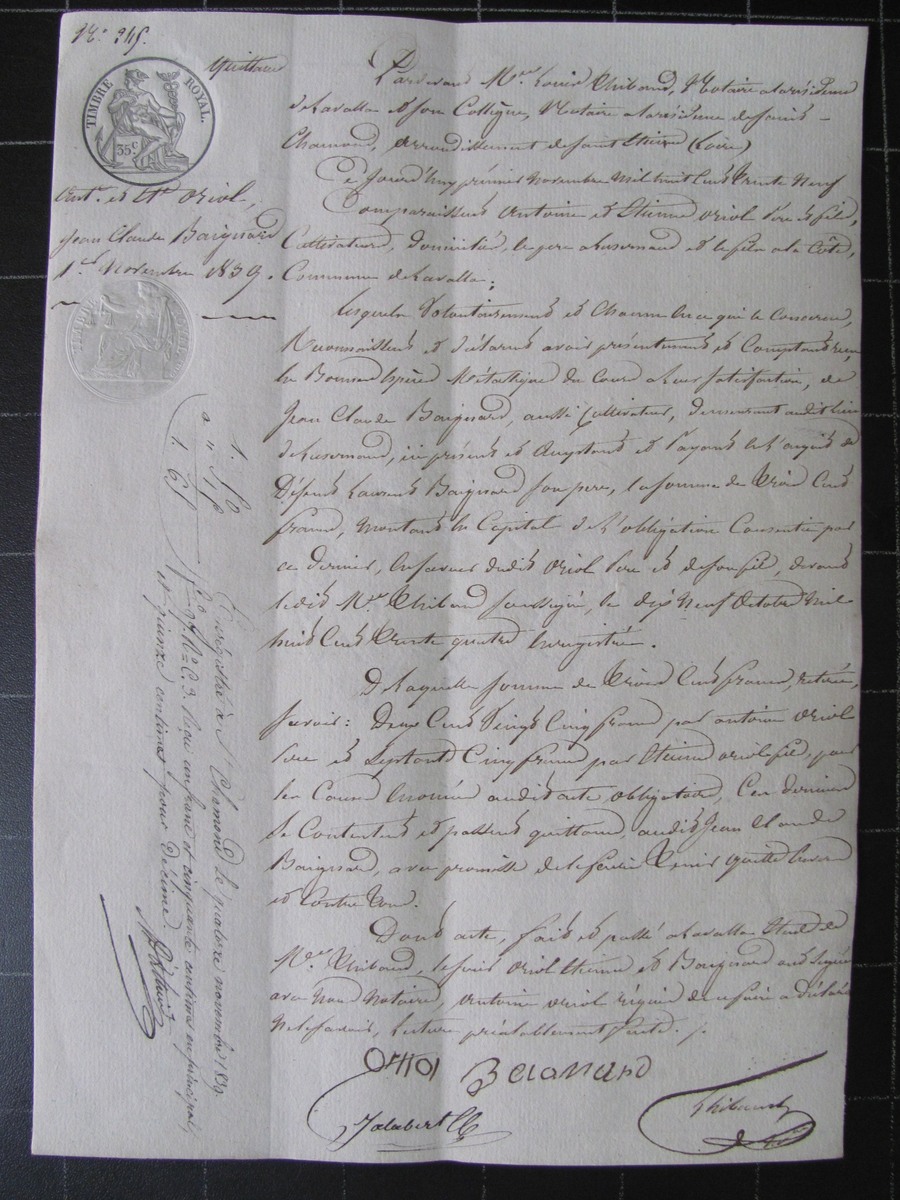 N.º 245.
Quittance
TIMBRE ROYAL.
35 c
Ant.ne et Et.ne Oriol,
Jean Claude Baignard
1.er Novembre 1839.
Pardevant M.tre Louis Thibaud, Notaire à la résidence
de Lavalla et son Collègue, Notaire à la résidence de Saint-
Chamond, arrondissement de Saint Etienne (Loire)
Ce jourd'huy premier novembre mil huit cent trente neuf
Comparaissent Antoine et Etienne Oriol père et fils,
Cultivateurs, domiciliés, le père à Luzernaud et le fils à la Côte,
Commune de Lavalla;
Lesquels Volontairement et Chacun en ce qui le concerne,
Reconnaissent et déclarent avoir présentement et Comptant reçu
en Bonnes Espèces Métallique du Cours à leur satisfaction, de
Jean Claude Baignard, aussi Cultivateur, demeurant audit lieu
de Luzernaud, ici présent et acceptant et Payant à l'acquit de
Défunt Laurent Baignard son père, la somme de trois Cent
francs, montant en Capital de l'obligation Consentie par
ce dernier, en faveur dudit Oriol Père et de son fils, devant
ledit M.tre Thibaud soussigné, le dix Neuf Octobre Mil
huit Cent trente quatre Enregistrée.
De laquelle somme de trois Cent francs, retirée,
savoir: Deux Cent Vingt Cinq francs par Antoine Oriol
Père et Septante Cinq francs par Etienne Oriol fils, pour
les Causes énoncées audit acte obligatoire, Ces derniers
se Contentent et passent quittance, audit Jean Claude
Baignard, avec promesse de le faire tenir quitte Envers
et Contre tous.
Dont acte, fait et passé à Lavalla Etude de
M.tre Thibaud, lesdits Oriol Etienne et Baignard ont signé
avec Nous Notaires, Antoine Oriol requis de ce faire a déclaré
Ne le savoir, lecture préalablement faite.
Oriol Baignard
Jalabert
Thibaud
1. 50
" 15
1. 65
Enregistré à S.t Chamond le quatorze novembre 1839.
C. 3. Reçu un franc et cinquante centimes en principal,
et quinze centimes pour décime.